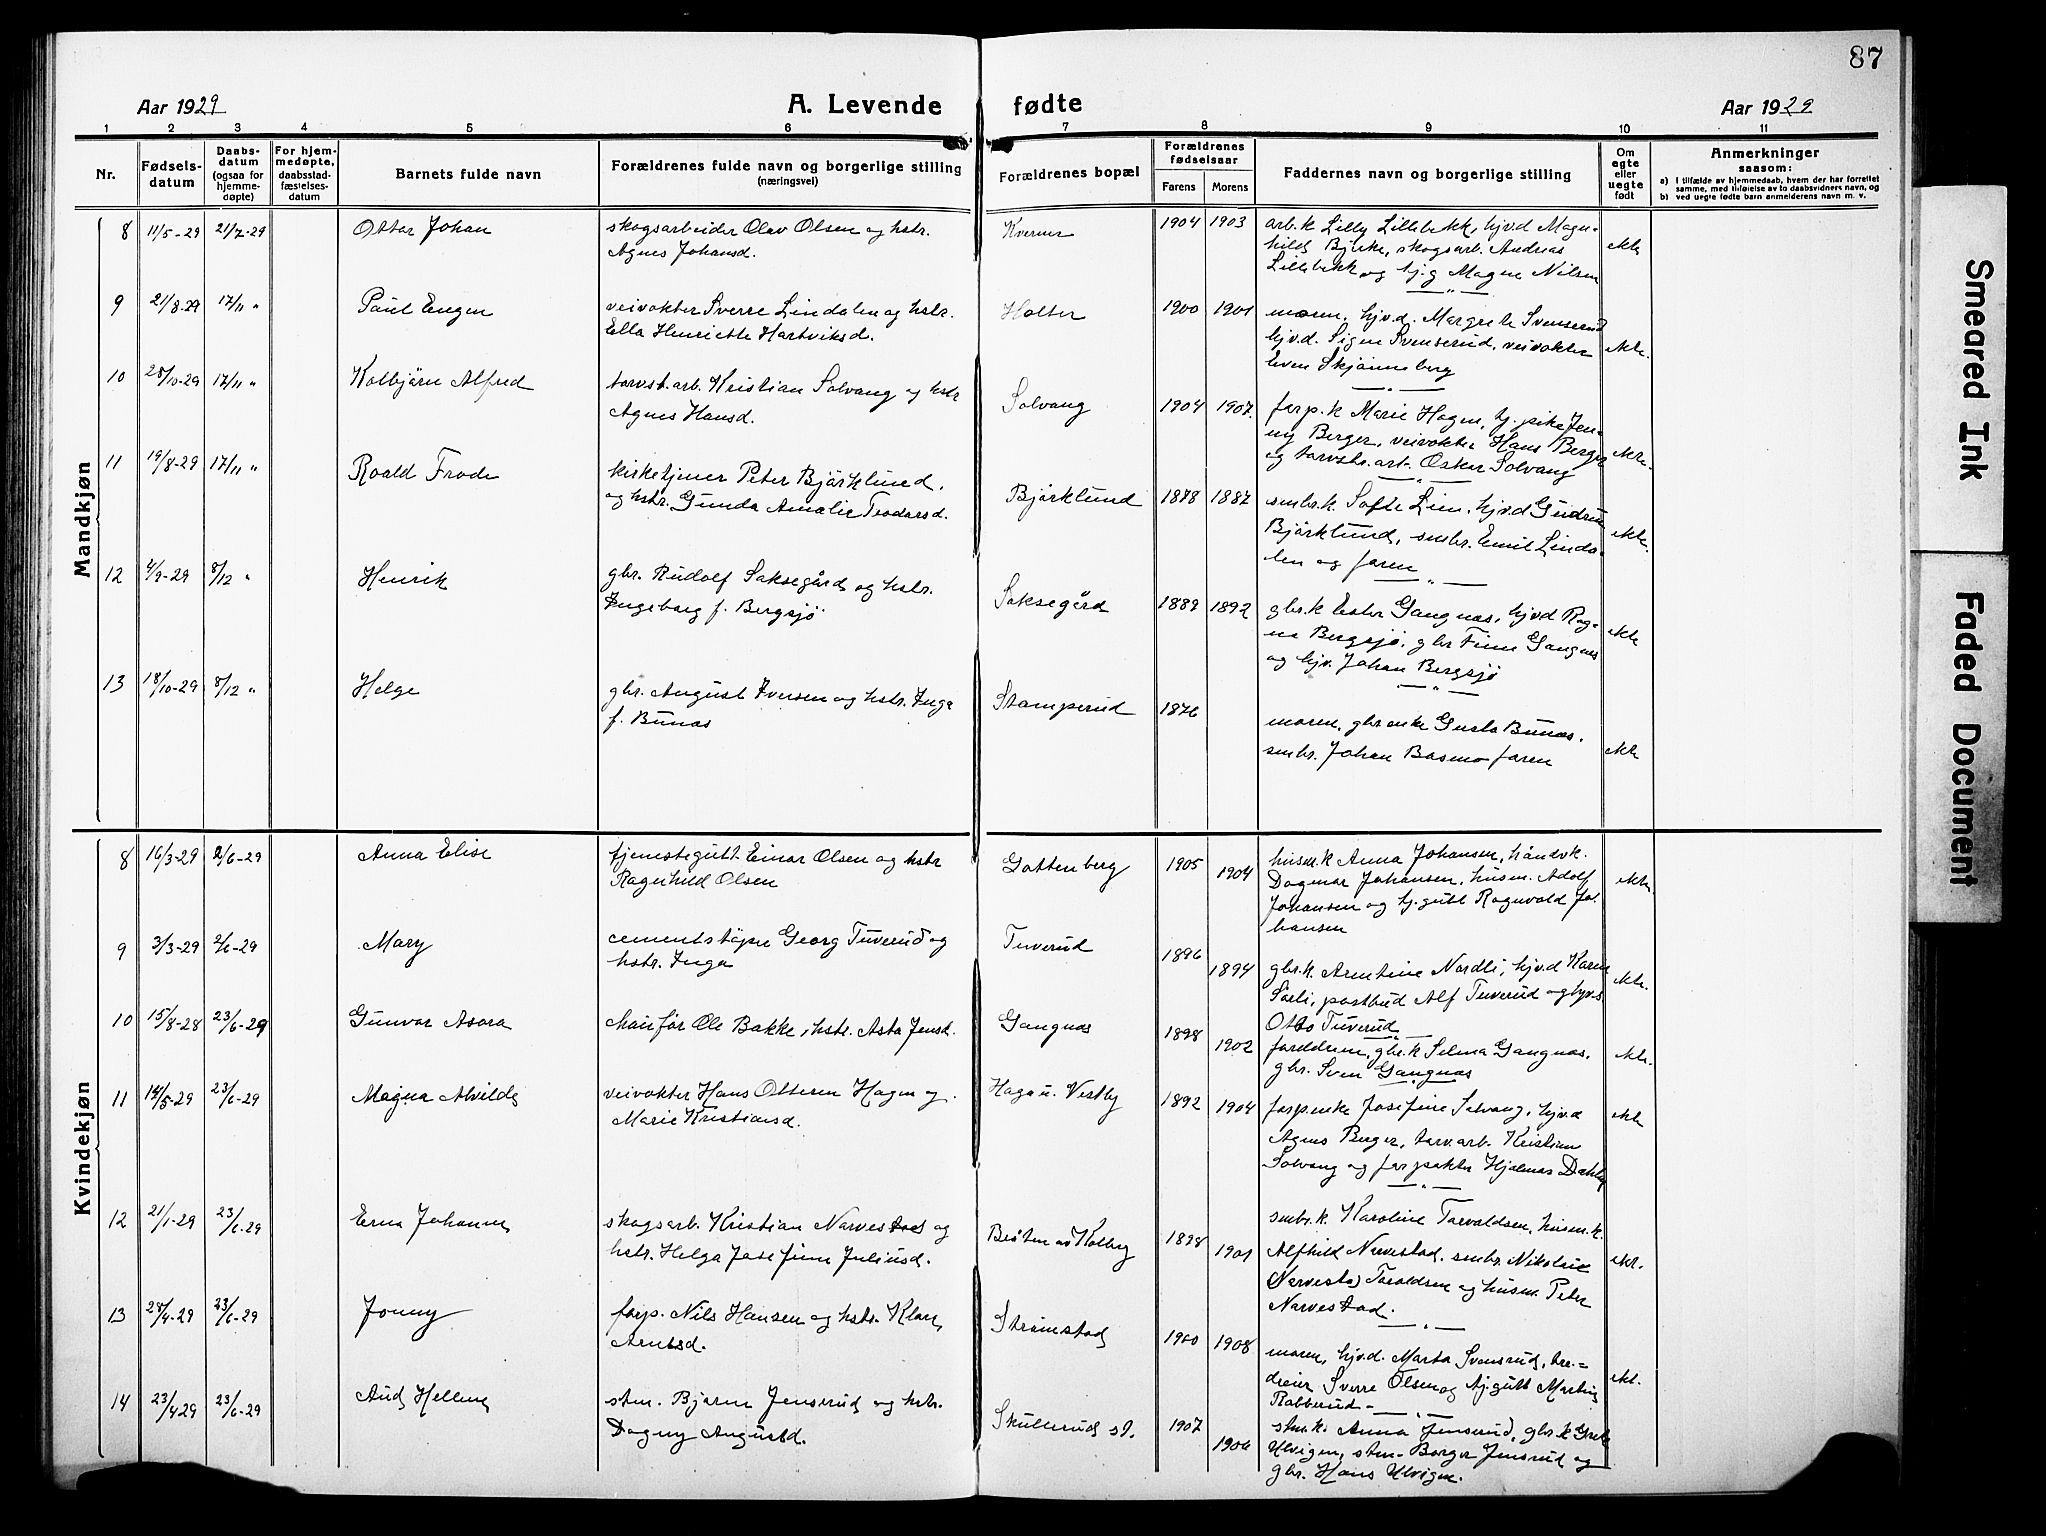 87
Aar 1929
A. Levende fødte
Aar 1929
1 2 3 4 5 6 7 8 9 10 11
Nr.
Fødsels-
datum
Daabs-
datum
(ogsaa for
hjemme-
døpte)
For hjem-
medøpte,
daabsstad-
fæstelses-
datum
Barnets fulde navn
Forældrenes fulde navn og borgerlige stilling
(næringsvei)
Forældrenes bopæl
Forældrenes
fødselsaar
Farens Morens
Faddernes navn og borgerlige stilling
Om
egte
eller
uegte
født
Anmerkninger
saasom:
a) I tilfælde av hjemmedaab, hvem der har forrettet
samme, med tilføielse av to daabsvidners navn, og
b) ved uegte fødte barn anmelderens navn m. v.
Mandkjøn
8 11/5-29 21/7-29 Ottar Johan
skogsarbeider Olav Olsen og hstr.
Agnes Johansd.
Kverner 1904 1903
arb.k Lilly Lillebekk, hjv.d Mag-
hild Bjerke, skogsarb. Andreas
Lillebekk og tj.g Magne Nilsen
ekte
9 21/8-29 17/11 "
Paul Eugen
veivokter Sverre Lindalen og hstr.
Ella Henriette Hartviksd.
Holter 1900 1901
moren, hjv.d. Margrete Svenserud
hjv.d. Signe Svenserud, veivokter
Even Skjønneberg
ekte.
10 28/10-29 17/11 "
Kolbjörn Alfred
torvst.arb. Kristian Solvang og hstr
Agnes Hansd.
Solvang 1904 1907.
forp.k Marie Hagen, tj. pike Jen-
ny Berger, veivokter Hans Berger
og torvstr. arb. Oskar Solvang
ekte.
11 19/8-29 17/11 "
Roald Frode
kirketjener Peter Björklund,
og hstr. Gunda Amalie Teodorsd.
Björklund 1878 1887
smbr.k Sofie Lien, hjv.d Gudrun
Björklund, smbr. Emil Linda-
len og faren
ekte.
12 4/9-29 8/12 "
Henrik
gbr. Rudolf Saksegård og hstr.
Ingeborg f. Bergsjö
Saksegård 1889 1892
gbr.k Ester Gangnæs, hjv.d Rag-
na Bergsjö, gbr Finn Gangnæs
og hjv. Johan Bergsjö
ekte
13 18/10-29 8/12 "
Helge
gbr. August Iversen og hstr. Inga
f. Bunæs
Stamperud 1876
moren, gbr enke Gusta Bunæs.
smbr. Johan Basmo faren
ekte
Kvindekjøn
8 16/3-29 2/6-29
Anna Elise
tjenestegutt Einar Olsen og hstr
Ragnhild Olsen
Gottenberg 1905 1904
husm.k Anna Johansen, håndv.k.
Dagmar Johansen, husm. Adolf
Johansen og tj.gutt Ragnvald Jo-
hansen
ekte
9 3/3-29 2/6-29
Mary
cementstöper Georg Tuverud og
hstr. Inga
Tuverud 1896 1894
gbr.k. Arentine Nordli, hjv.d Karen
Sörli, postbud Alf Tuverud og hjv.s.
Otto Tuverud
ekte.
10 15/8-28 23/6-29
Gunvor Asora
chauför Ole Bakke, hstr. Asta Jensd.
Gangnæs 1898 1902
foreldrene, gbr.k Selma Gangnæs,
gbr. Sven Gangnæs
ekte.
11 14/5-29 23/6-29
Magna Alvilde
veivokter Hans Ottesen Hagen og
Marie Kristiansd.
Haga u. Vestby 1892 1904
forp.enke Josefine Solvang, hjv.d
Agnes Berger, torv.arb. Kristian
Solvang og forpakter Hjalmar Dahlby
ekte
12 21/1-29 23/6-29
Erna Johanne
skogsarb. Kristian Narvestad og
hstr. Helga Josefine Juliusd.
av Kolby 1898 1901
smbr.k. Karoline Torvaldsen, husm.k.
Alfhild Narvestad, smbr. Nikolai
Narvestad Toraldsen og husm. Peter
Narvestad.
ekt.
13 28/4-29 23/6-29
Jonny
forp. Nils Hansen og hstr. Klara
Arntsd.
Strömstad 1900 1908
moren, hjv.d. Marta Svensrud, tre-
dreier Sverre Olsen og tj.gutt Martin
Rabberud
ekt.
14 23/4 29 23/6-29
Aud Hellene
stm. Bjarne Jensrud og hstr.
Dagny Augustd.
Skullerud st. 1907 1906
stm.k. Anna Jensrud, gbr.k Grete
Ulvigen, stm. Borger Jensrud og
gbr. Hans Ulvigen.
Smeared Ink
Faded Document